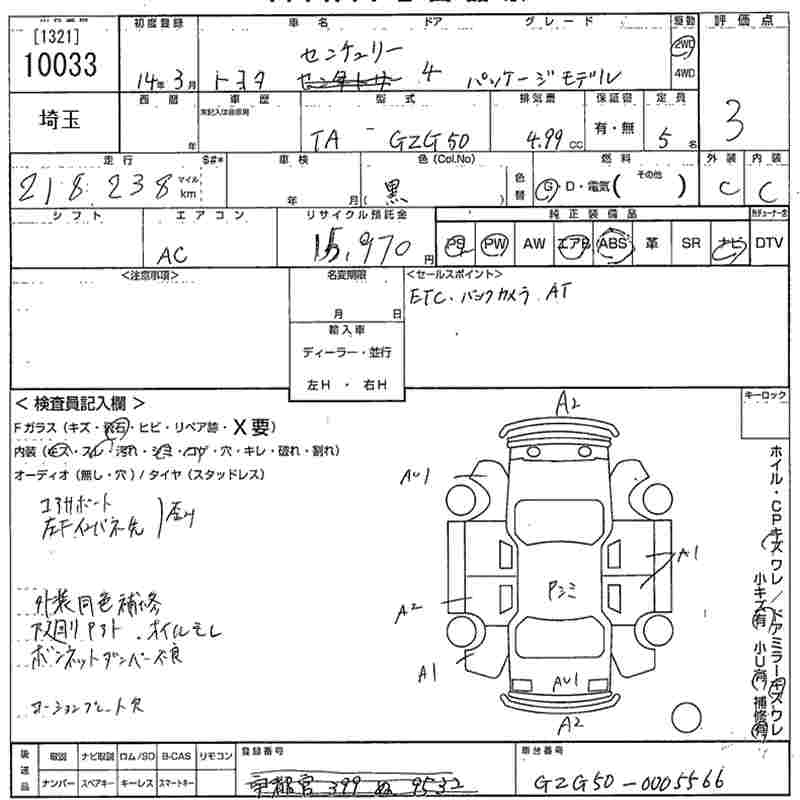 [1321]
10033
初度登録
14年3月
車名
トヨタ
センチュリー
ドア
4
グレード
パッケージモデル
駆動
2WD
4WD
評価点
3
埼玉
西暦
年
車歴
型式
TA - GZG50
排気量
4.99 CC
保証書
有・無
定員
5名
走行
218,238
マイル
km
S#*
車検
年 月
色(Col.No)
黒
色替
燃料
G・D・電気( その他 )
外装
C
内装
C
シフト
エアコン
AC
リサイクル預託金
15,970円
純正装備品
PS PW AW エアB ABS 革 SR ナビ DTV
<注意事項>
名変期限
月 日
輸入車
ディーラー・並行
左H ・ 右H
<セールスポイント>
ETC・バックカメラ AT
< 検査員記入欄 >
Fガラス(キズ・飛石・ヒビ・リペア跡・X要)
内装(キズ・スレ・汚れ・シミ・コゲ・穴・キレ・破れ・割れ)
オーディオ(無し・穴)/タイヤ(スタッドレス)
コアサポート
左Fインパネ先
歪み
外装同色補修
下廻りPアト、オイルモレ
ボンネットダンパー不良
コーションプレート欠
A2
AU1
A1
A2
A1
Pシミ
AU1
A2
キーロック
ホイル・CPキズワレ/ドアミラーキズワレ
小キズ(有) 小U(有) 補修(有)
後送品
取説 ナビ取説 ロム/SD B-CAS リモコン
ナンバー スペアキー キーレス スマートキー
登録番号
399 ぬ 9532
車台番号
GZG50-0005566